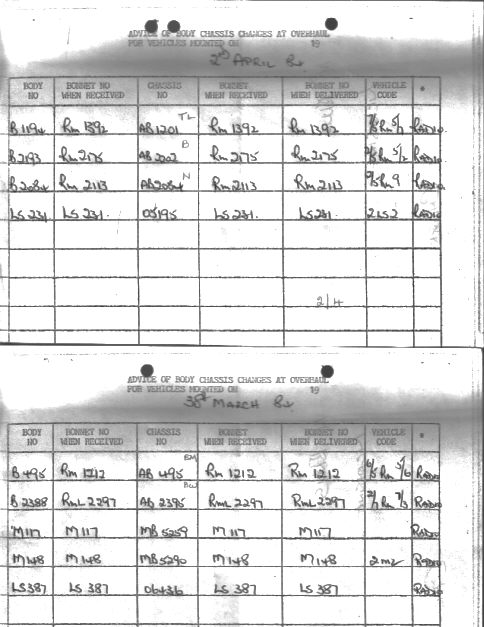 ADVICE OF BODY CHASSIS CHANGES AT OVERHAUL
FOR VEHICLES MOUNTED ON 19
2nd APRIL 84
BODY NO BONNET NO WHEN RECEIVED CHASSIS NO BONNET WHEN RECEIVED BONNET NO WHEN DELIVERED VEHICLE CODE *
B1194 Rm 1392 AB1201 TL Rm 1392 Rm 1392 7/5 Rm 5/7 RADIO
B2193 Rm 2175 AB2202 B Rm 2175 Rm 2175 Rm 5/2 RADIO
B2084 Rm 2113 AB2084 N Rm 2113 Rm 2113 Rm 9 RADIO
LS 231 LS 231. 05195 LS 231. LS 231. 2LS2 RADIO
2/4
ADVICE OF BODY CHASSIS CHANGES AT OVERHAUL
FOR VEHICLES MOUNTED ON 19
MARCH 84
BODY NO BONNET NO WHEN RECEIVED CHASSIS NO BONNET WHEN RECEIVED BONNET NO WHEN DELIVERED VEHICLE CODE *
B 495 Rm 1212 AB 495 EM Rm 1212 Rm 1212 6/5 Rm 5/6 RADIO
B 2388 RmL 2297 AB 2395 BW RmL 2297 RmL 2297 2/7 Rm 7/3 RADIO
M117 M117 MB 5259 M117 M117 RADIO
M148 M148 MB 5290 M148 M148 2 m2 RADIO
LS387 LS 387 06436 LS 387 LS 387 RADIO